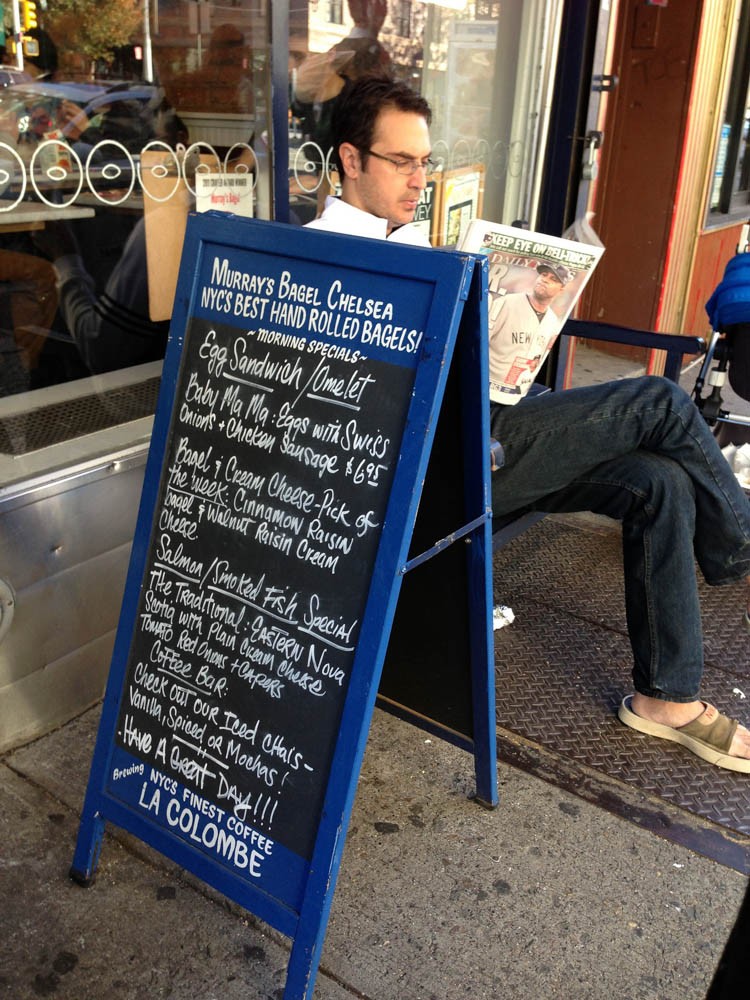 MURRAY'S BAGEL CHELSEA
NYC'S BEST HAND ROLLED BAGELS!
~MORNING SPECIALS~
Egg Sandwich/Omelet
Baby Ma Ma: Eggs with Swiss
Onions + Chicken Sausage $6.95
Bagel & Cream Cheese-Pick of
the week: Cinnamon Raisin
bagel & Walnut Raisin Cream
Cheese
Salmon/Smoked Fish Special
The Traditional: Eastern Nova
Scotia with Plain Cream Cheese
Tomato Red Onions + Capers
Coffee Bar:
Check out our Iced Chais-
Vanilla, Spiced, or Mochas!
-Have A Great Day!!!
Brewing NYC'S FINEST COFFEE
LA COLOMBE
KEEP EYE ON DELI-TRUCK!
DAILY
NEW
Murray's Bagel